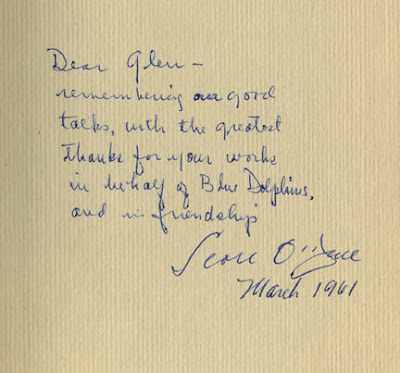 Dear Glen –
remembering our good
talks, with the greatest
thanks for your works
in behalf of Blue Dolphins,
and in friendship
Scott O'Dell
March 1961